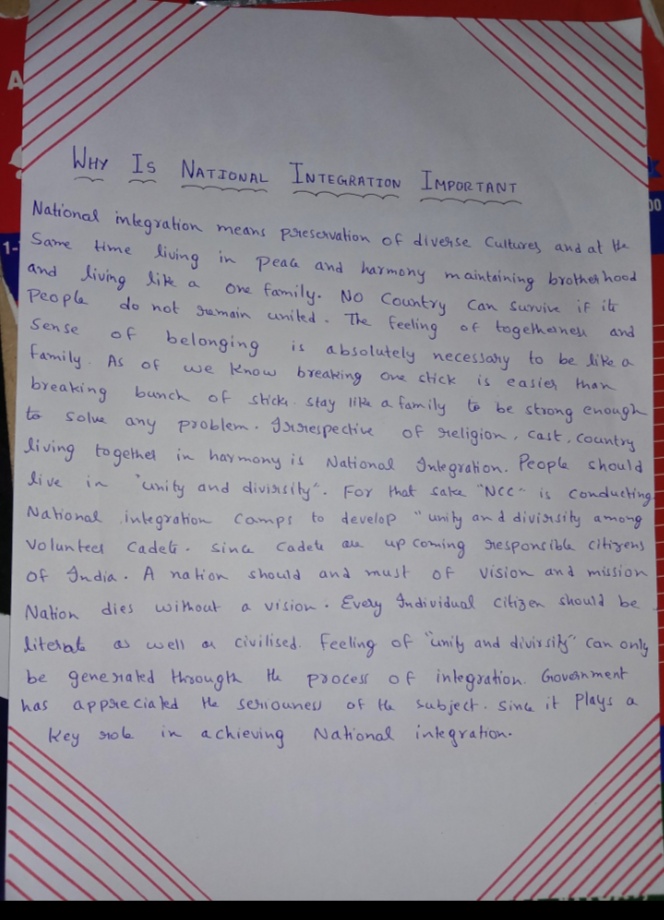 WHY IS NATIONAL INTEGRATION IMPORTANT
National integration means preservation of diverse Cultures and at the
Same time living in peace and harmony maintaining brotherhood
and living like a one family. No Country Can Survive if its
People do not remain united. The feeling of togetherness and
Sense of belonging is absolutely necessary to be like a
family. As of we know breaking one stick is easier than
breaking bunch of sticks. stay like a family to be strong enough
to solve any problem. Irrespective of religion, cast, country
living together in harmony is National Integration. People should
live in "unity and divirsity". For that sake "NCC" is conducting
National integration Camps to develop "unity and divirsity among
volunteer Cadets. Since Cadets are up coming responsible citizens
of India. A nation should and must of vision and mission
Nation dies without a vision. Every Individual citizen should be
literate as well as civilised. Feeling of "unity and divirsity" Can only
be generated through the process of integration. Government
has appreciated the seriouness of the subject. Since it Plays a
Key role in achieving National integration.
A
1-
00